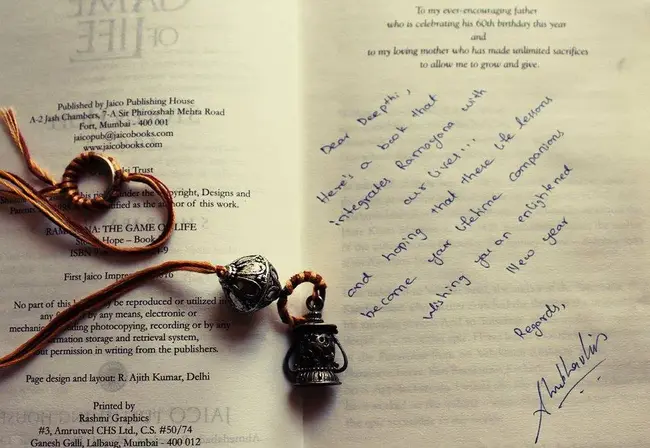 Published by Jaico Publishing House
A-2 Jash Chambers, 7-A Sir Phirozshah Mehta Road
Fort, Mumbai - 400 001
jaicopub@jaicobooks.com
www.jaicobooks.com
Trust
under the Designs and
as the author of this work.
THE GAME OF LIFE
Hope – Book
ISBN
First Jaico
No part of this be reproduced or utilized in
by any means, electronic or
photocopying, recording or by any
storage and retrieval system,
permission in writing from the publishers.
Page design and layout: R. Ajith Kumar, Delhi
Printed by
Rashmi Graphics
#3, Amrutwel CHS Ltd., C.S. #50/74
Ganesh Galli, Lalbaug, Mumbai - 400 012
To my ever-encouraging father
who is celebrating his 60th birthday this year
and
to my loving mother who has made unlimited sacrifices
to allow me to grow and give.
Dear Deepthi,
Here's a book that
integrates Ramayana with
our lives...
and hoping that these life lessons
become your lifetime companions
wishing you an enlightened
New year
Regards,